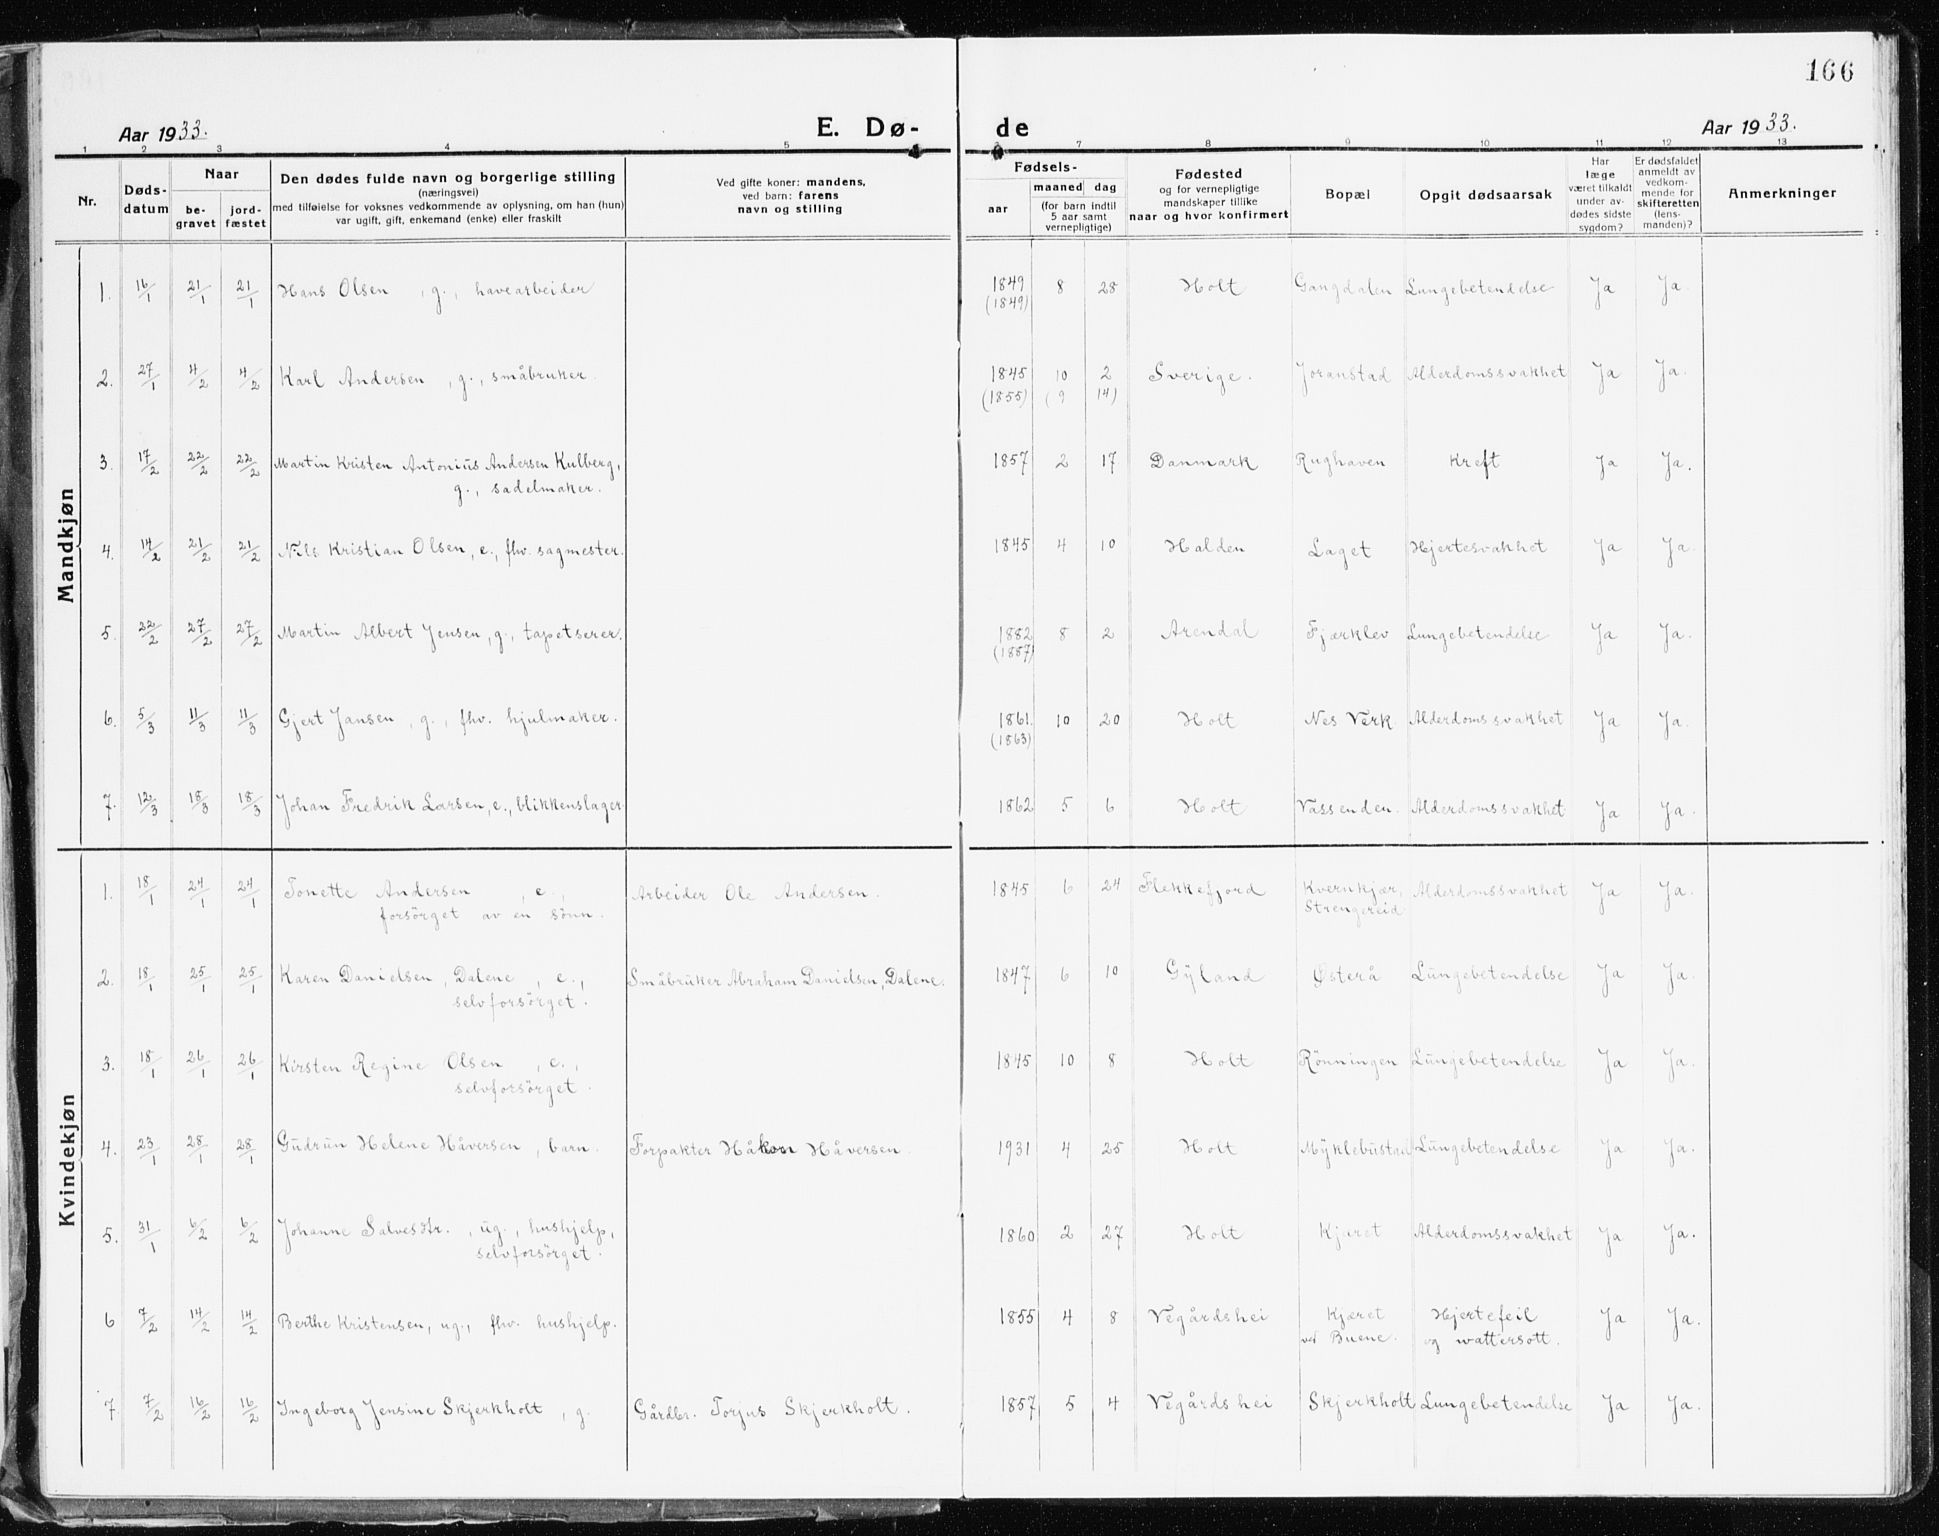 166
Aar 1933. E. Dø- de Aar 1933.
1 2 3 4 5 7 8 9 10 11 12 13
Nr.
Døds-datum
Naar
be-gravet
jord-fæstet
Den dødes fulde navn og borgerlige stilling
(næringsvei)
med tilføielse for voksnes vedkommende av oplysning, om han (hun)
var ugift, gift, enkemand (enke) eller fraskilt
Ved gifte koner: mandens,
ved barn: farens
navn og stilling
Fødsels-
aar
maaned dag
(for barn indtil
5 aar samt
vernepligtige)
Fødested
og for vernepligtige
mandskaper tillike
naar og hvor konfirmert
Bopæl
Opgit dødsaarsak
Har
læge
været tilkaldt
under av-
dødes sidste
sygdom?
Er dødsfaldet
anmeldt av
vedkom-
mende for
skifteretten
(lens-
manden)?
Anmerkninger
Mandkjøn
1. 16/1 21/1 21/1 Hans Olsen , g., havearbeider 1849 8 28 Holt Gangdalen Lungebetendelse Ja Ja.
(1849)
2. 27/1 4/2 4/2 Karl Andersen , g., småbruker. 1845 10 2 Sverige. Joranstad Alderdomssvakhet Ja Ja.
(1855) (9 14)
3. 17/2 22/2 22/2 Martin Kristen Antonius Andersen Kulberg, 1857 2 17 Danmark Rughaven Kreft Ja Ja.
g., sadelmaker.
4. 14/2 21/2 21/2 Nils Kristian Olsen, e., fhv. sagmester. 1845 4 10 Halden Laget Hjertesvakhet Ja Ja.
5. 22/2 27/2 27/2 Martin Albert Jensen, g., tapetserer. 1882 8 2 Arendal Fjærklev Lungebetendelse Ja Ja.
(1887)
6. 5/3 11/3 11/3 Gjert Jansen , g., fhv. hjulmaker. 1861. 10 20 Holt Nes Verk Alderdomssvakhet Ja Ja.
(1863)
7. 12/3 18/3 18/3 Johan Fredrik Larsen, e., blikkenslager. 1862 5 6 Holt Vassenden. Alderdomssvakhet Ja Ja.
Kvindekjøn
1. 18/1 24/1 24/1 Tonette Andersen , e., Arbeider Ole Andersen. 1845 6 24 Flekkefjord Kvernkjær, Alderdomssvakhet Ja Ja.
forsörget av en sönn. Strengereid
2. 18/1 25/1 25/1 Karen Danielsen, Dalene , e., Småbruker Abraham Danielsen, Dalene. 1847 6 10 Gyland Østerå Lungebetendelse Ja Ja.
selvforsörget.
3. 18/1 26/1 26/1 Kirsten Regine Olsen , e., 1845 10 8 Holt Rönningen Lungebetendelse Ja Ja.
selvforsörget.
4. 23/1 28/1 28/1 Gudrun Helene Håversen , barn. Forpakter Håkon Håversen. 1931 4 25 Holt Myklebustad Lungebetendelse Ja Ja.
5. 31/1 6/2 6/2 Johanne Salvesdtr. , ug., hushjelp, 1860 2 27 Holt Kjæret Alderdomssvakhet Ja Ja.
selvforsörget.
6 7/2 14/2 14/2 Berthe Kristensen, ug., fhv. hushjelp. 1855 4 8 Vegårdshei Kjæret Hjertefeil Ja Ja.
ved Buene. og wattersott.
7. 7/2 16/2 16/2 Ingeborg Jensine Skjerkholt , g. Gårdbr. Torjus Skjerkholt. 1857 5 4 Vegårdshei Skjerkholt Lungebetendelse Ja Ja.